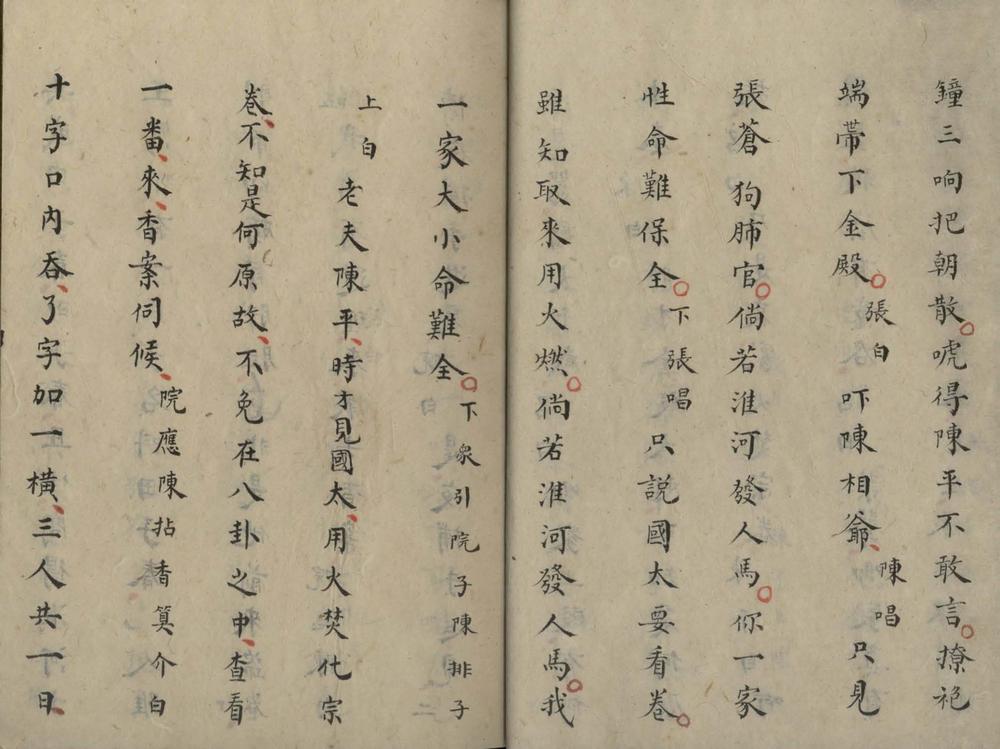 鐘三响把朝散。唬得陳平不敢言。撩袍
端帶下金殿。張白吓陳相爺、陳唱只見
張蒼狗肺官。倘若淮河發人馬。你一家
性命難保全。下張唱只說國太要看卷。
雖知取來用火燃。倘若淮河發人馬。我
一家大小命難全。下衆引院子陳排子
上白老夫陳平、時才見國太、用火焚化宗
卷、不知是何原故、不免在八卦之中、查看
一番、來、香案伺候、院應陳拈香算介白
十字口內吞、了字加一橫、三人共一日、